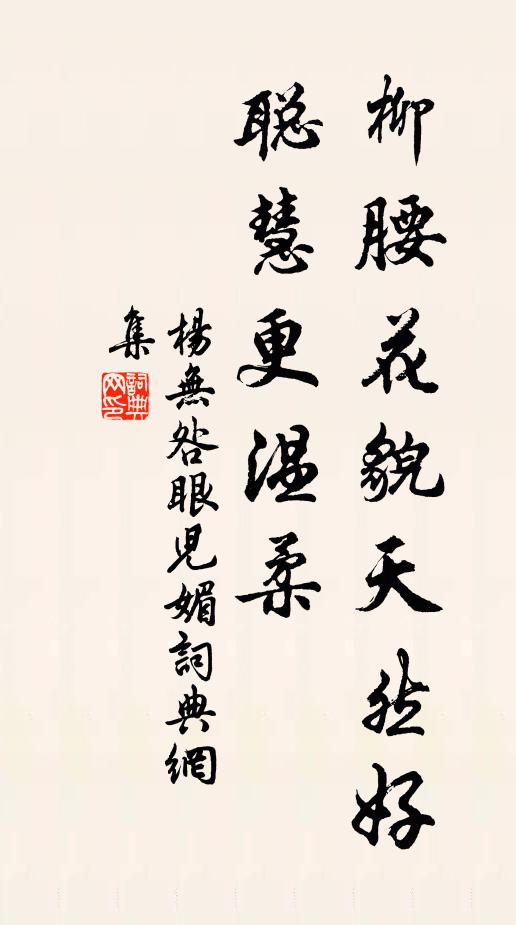 柳腰花貌天然好
聪慧更温柔
楊無咎眼兒媚詞典網
集
詞典
网印